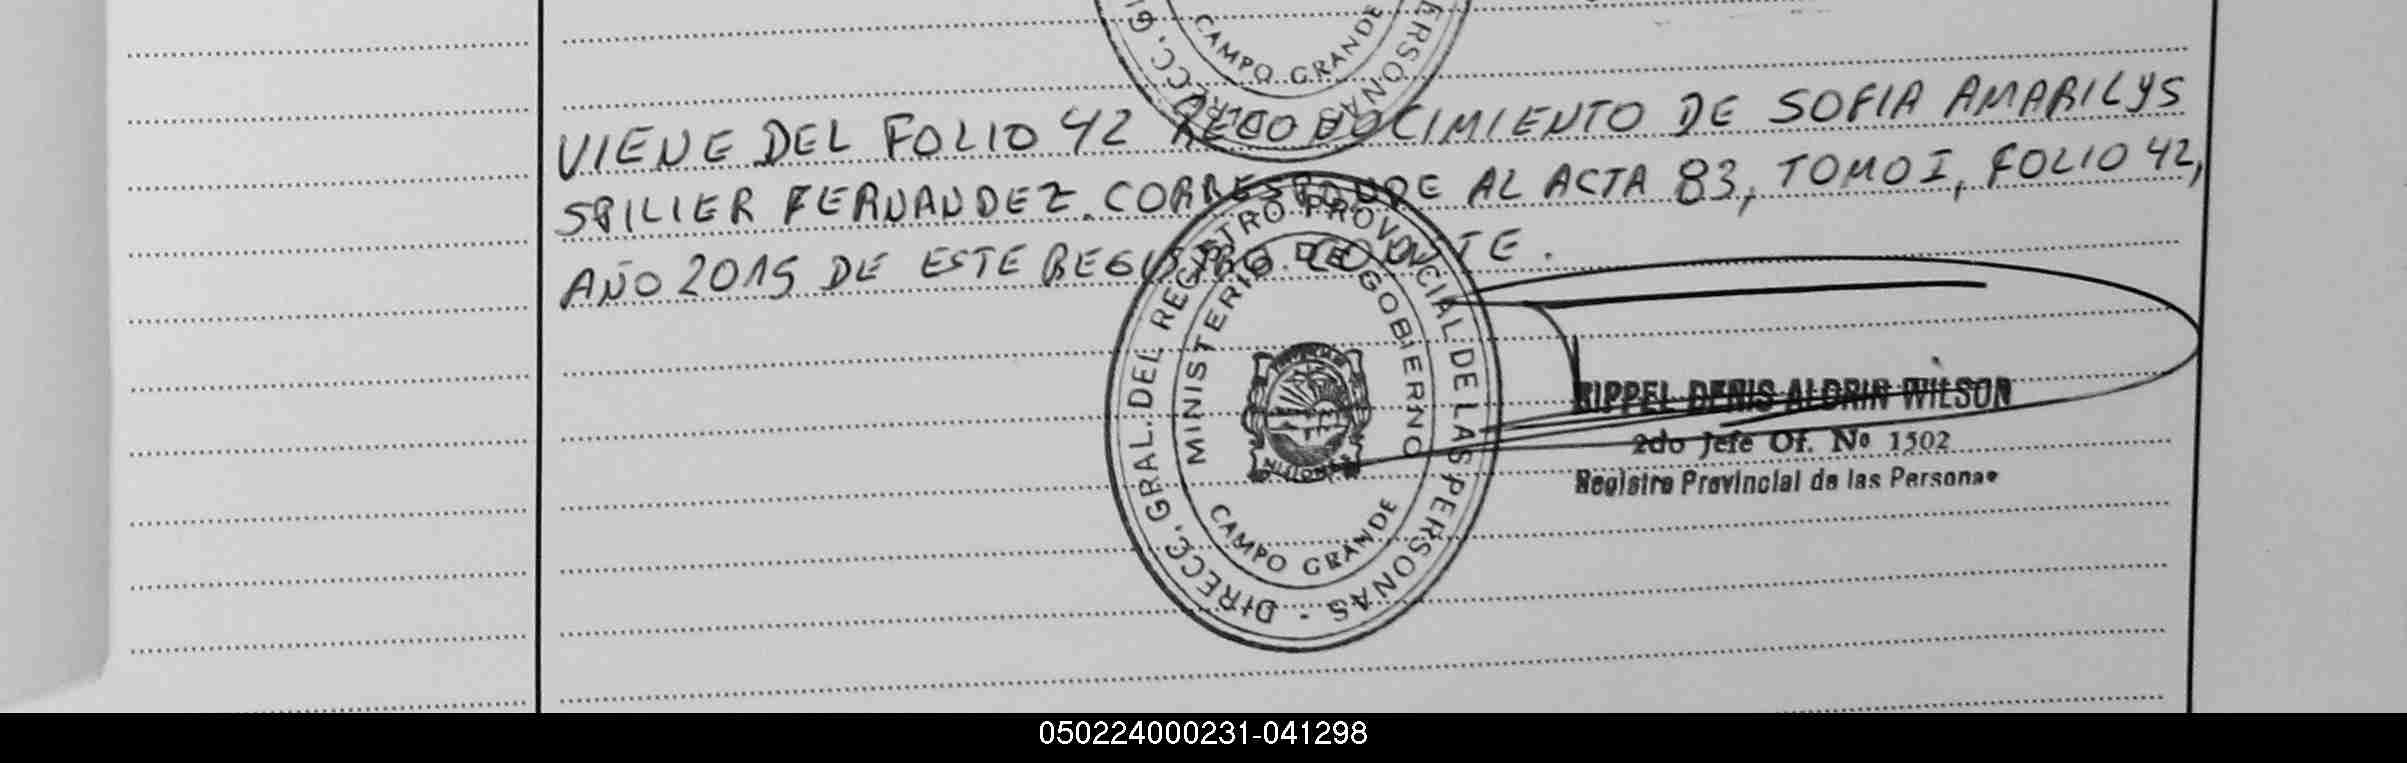 CAMPO GRANDE
VIENE DEL FOLIO 42 RECONOCIMIENTO DE SOFIA AMARILYS
SPILIER FERNANDEZ. CORRESPONDE AL ACTA 83, TOMO I, FOLIO 42,
AÑO 2015 DE ESTE REGISTRO. CONSTE.
DIRECC. GRAL. DEL REGISTRO PROVINCIAL DE LAS PERSONAS -
MINISTERIO DE GOBIERNO
MISIONES
CAMPO GRANDE
RIPPEL DENIS ALDRIN WILSON
2do Jefe Of. Nº 1502
Registro Provincial de las Personas
050224000231-041298